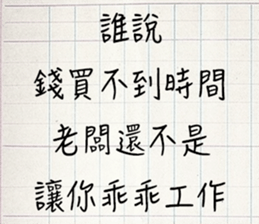 誰說
錢買不到時間
老闆還不是
讓你乖乖工作